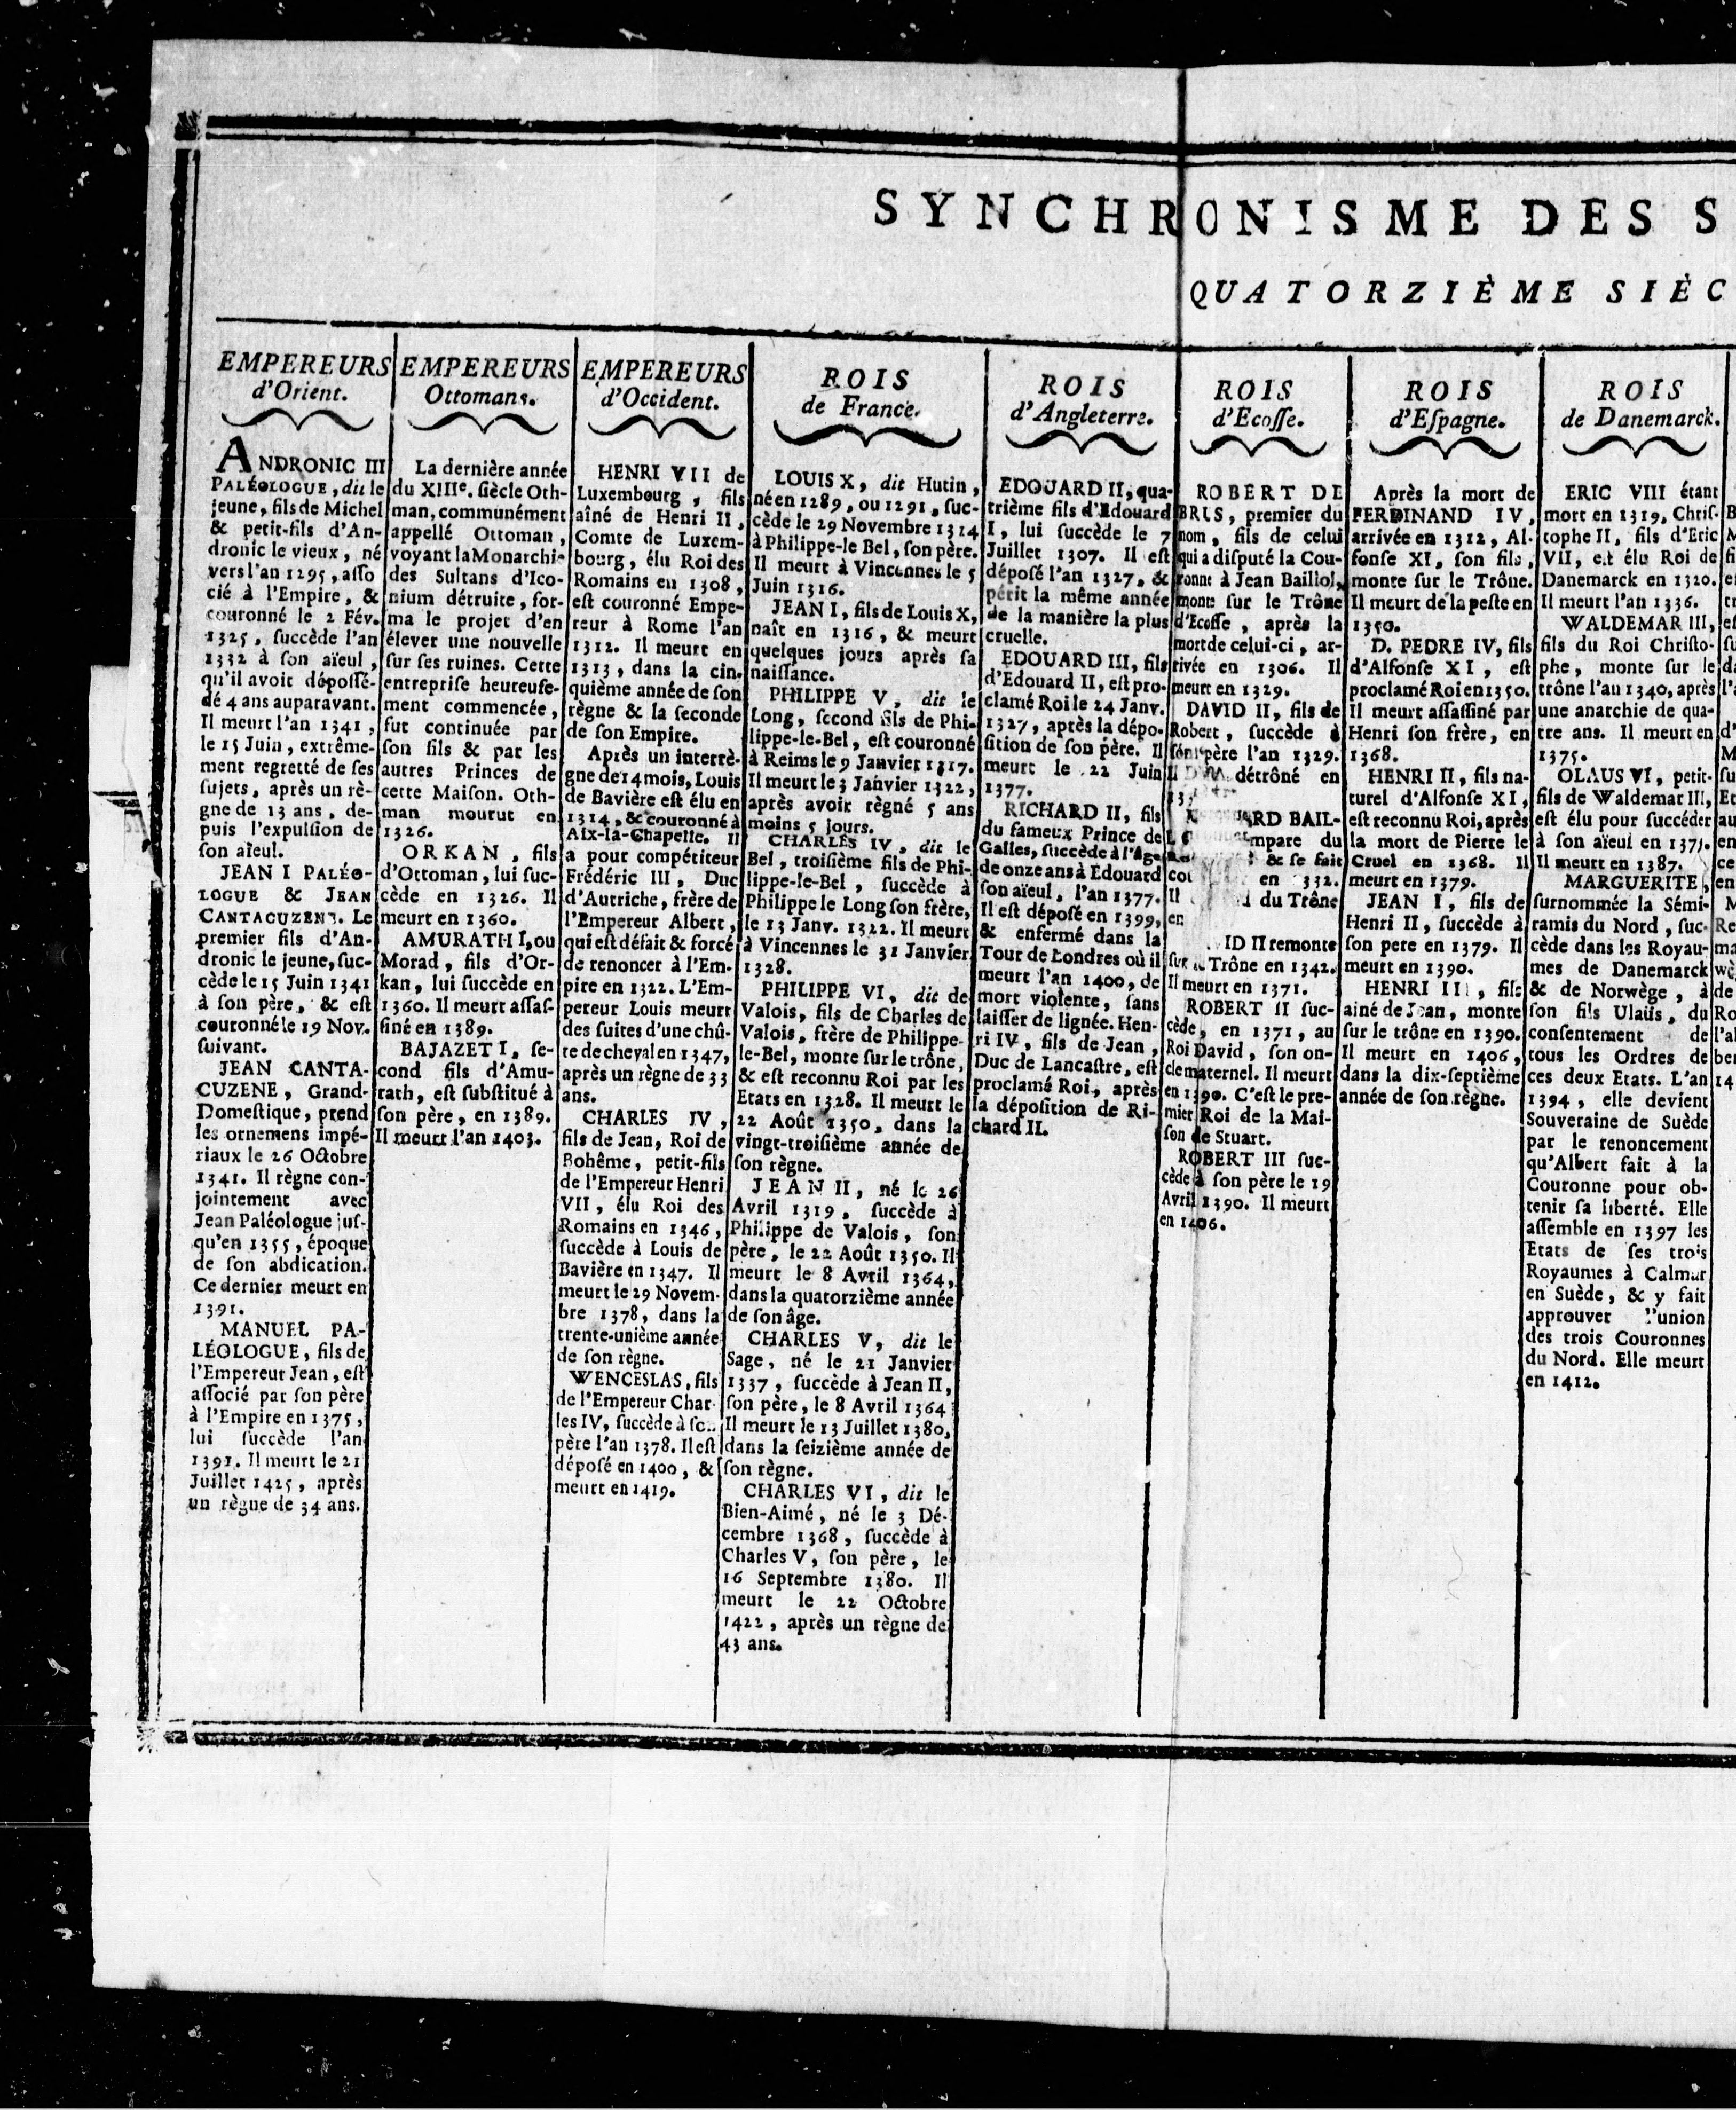 SYNCHRONISME DES S
QUATORZIÈME SIÈC
EMPEREURS
d'Orient.
ANDRONIC III
PALÉOLOGUE, dit le
jeune, fils de Michel
& petit-fils d'An-
dronic le vieux, né
vers l'an 1295, asso
cié à l'Empire, &
couronné le 2 Fév.
1325, succède l'an
1332 à son aïeul,
qu'il avoit dépossé-
dé 4 ans auparavant.
Il meurt l'an 1341,
le 15 Juin, extrême-
ment regretté de ses
sujets, après un rè-
gne de 13 ans, de-
puis l'expulsion de
son aïeul.
JEAN I PALÉO-
LOGUE & JEAN
CANTACUZENE. Le
premier fils d'An-
dronic le jeune, suc-
cède le 15 Juin 1341
à son père, & est
couronné le 19 Nov.
suivant.
JEAN CANTA-
CUZENE, Grand-
Domestique, prend
les ornemens impé-
riaux le 26 Octobre
1341. Il règne con-
jointement avec
Jean Paléologue jus-
qu'en 1355, époque
de son abdication.
Ce dernier meurt en
1391.
MANUEL PA-
LÉOLOGUE, fils de
l'Empereur Jean, est
associé par son père
à l'Empire en 1375,
lui succède l'an
1391. Il meurt le 21
Juillet 1425, après
un règne de 34 ans.
EMPEREURS
Ottomans.
La dernière année
du XIIIe. siècle Oth-
man, communément
appellé Ottoman,
voyant la Monarchie
des Sultans d'Ico-
nium détruite, for-
ma le projet d'en
élever une nouvelle
sur ses ruines. Cette
entreprise heureuse-
ment commencée,
fut continuée par
son fils & par les
autres Princes de
cette Maison. Oth-
man mourut en
1326.
ORKAN, fils
d'Ottoman, lui suc-
cède en 1326. Il
meurt en 1360.
AMURATH I, ou
Morad, fils d'Or-
kan, lui succède en
1360. Il meurt assas-
siné en 1389.
BAJAZET I, se-
cond fils d'Amu-
rath, est substitué à
son père, en 1389.
Il meurt l'an 1403.
EMPEREURS
d'Occident.
HENRI VII de
Luxembourg, fils
aîné de Henri II,
Comte de Luxem-
bourg, élu Roi des
Romains en 1308,
est couronné Empe-
reur à Rome l'an
1312. Il meurt en
1313, dans la cin-
quième année de son
règne & la seconde
de son Empire.
Après un interrè-
gne de 14 mois, Louis
de Bavière est élu en
1314, & couronné à
Aix-la-Chapelle. Il
a pour compétiteur
Frédéric III, Duc
d'Autriche, frère de
l'Empereur Albert,
qui est défait & forcé
de renoncer à l'Em-
pire en 1322. L'Em-
pereur Louis meurt
des suites d'une chû-
te de cheval en 1347,
après un règne de 33
ans.
CHARLES IV,
fils de Jean, Roi de
Bohême, petit-fils
de l'Empereur Henri
VII, élu Roi des
Romains en 1346,
succède à Louis de
Bavière en 1347. Il
meurt le 29 Novem-
bre 1378, dans la
trente-unième année
de son règne.
WENCESLAS, fils
de l'Empereur Char-
les IV, succède à son
père l'an 1378. Il est
déposé en 1400, &
meurt en 1419.
ROIS
de France.
LOUIS X, dit Hutin,
né en 1289, ou 1291, suc-
cède le 29 Novembre 1314
à Philippe-le Bel, son père.
Il meurt à Vincennes le 5
Juin 1316.
JEAN I, fils de Louis X,
naît en 1316, & meurt
quelques jours après sa
naissance.
PHILIPPE V, dit le
Long, second fils de Phi-
lippe-le-Bel, est couronné
à Reims le 9 Janvier 1317.
Il meurt le 3 Janvier 1322,
après avoir règné 5 ans
moins 5 jours.
CHARLES IV, dit le
Bel, troisième fils de Phi-
lippe-le-Bel, succède à
Philippe le Long son frère,
le 13 Janv. 1322. Il meurt
à Vincennes le 31 Janvier
1328.
PHILIPPE VI, dit de
Valois, fils de Charles de
Valois, frère de Philippe-
le-Bel, monte sur le trône,
& est reconnu Roi par les
Etats en 1328. Il meurt le
22 Août 1350, dans la
vingt-troisième année de
son règne.
JEAN II, né le 26
Avril 1319, succède à
Philippe de Valois, son
père, le 22 Août 1350. Il
meurt le 8 Avril 1364,
dans la quatorzième année
de son âge.
CHARLES V, dit le
Sage, né le 21 Janvier
1337, succède à Jean II,
son père, le 8 Avril 1364
Il meurt le 13 Juillet 1380,
dans la seizième année de
son règne.
CHARLES VI, dit le
Bien-Aimé, né le 3 Dé-
cembre 1368, succède à
Charles V, son père, le
16 Septembre 1380. Il
meurt le 22 Octobre
1422, après un règne de
43 ans.
ROIS
d'Angleterre.
EDOUARD II, qua-
trième fils d'Edouard
I, lui succède le 7
Juillet 1307. Il est
déposé l'an 1327, &
périt la même année
de la manière la plus
cruelle.
EDOUARD III, fils
d'Edouard II, est pro-
clamé Roi le 24 Janv.
1327, après la dépo-
sition de son père. Il
meurt le 22 Juin
1377.
RICHARD II, fils
du fameux Prince de
Galles, succède à l'âge
de onze ans à Edouard
son aïeul, l'an 1377.
Il est déposé en 1399,
& enfermé dans la
Tour de Londres où il
meurt l'an 1400, de
mort violente, sans
laisser de lignée. Hen-
ri IV, fils de Jean,
Duc de Lancastre, est
proclamé Roi, après
la déposition de Ri-
chard II.
ROIS
d'Ecosse.
ROBERT DE
BRUS, premier du
nom, fils de celui
qui a disputé la Cou-
ronne à Jean Baillol,
monte sur le Trône
d'Ecosse, après la
mort de celui-ci, ar-
rivée en 1306. Il
meurt en 1329.
DAVID II, fils de
Robert, succède à
son père l'an 1329.
Il détrôné en
BAIL-
du
& se fait
en
Il du Trône
en
II remonte
sur le Trône en 1342.
Il meurt en 1371.
ROBERT II suc-
cède, en 1371, au
Roi David, son on-
cle maternel. Il meurt
en 1390. C'est le pre-
mier Roi de la Mai-
son de Stuart.
ROBERT III suc-
cède à son père le 19
Avril 1390. Il meurt
en 1406.
ROIS
d'Espagne.
Après la mort de
FERDINAND IV,
arrivée en 1312, Al-
fonse XI, son fils,
monte sur le Trône.
Il meurt de la peste en
1350.
D. PEDRE IV, fils
d'Alfonse XI, est
proclamé Roi en 1350.
Il meurt assassiné par
Henri son frère, en
1368.
HENRI II, fils na-
turel d'Alfonse XI,
est reconnu Roi, après
la mort de Pierre le
Cruel en 1368. Il
meurt en 1379.
JEAN I, fils de
Henri II, succède à
son pere en 1379. Il
meurt en 1390.
HENRI III, fils
ainé de Jean, monte
sur le trône en 1390.
Il meurt en 1406,
dans la dix-septième
année de son règne.
ROIS
de Danemarck.
ERIC VIII étant
mort en 1319, Chris-
tophe II, fils d'Eric
VII, est élu Roi de
Danemarck en 1320.
Il meurt l'an 1336.
WALDEMAR III,
fils du Roi Christo-
phe, monte sur le
trône l'an 1340, après
une anarchie de qua-
tre ans. Il meurt en
1375.
OLAUS VI, petit-
fils de Waldemar III,
est élu pour succéder
à son aïeul en 1375.
Il meurt en 1387.
MARGUERITE,
surnommée la Sémi-
ramis du Nord, suc-
cède dans les Royau-
mes de Danemarck
& de Norwège, à
son fils Ulaüs, du
consentement de
tous les Ordres de
ces deux Etats. L'an
1394, elle devient
Souveraine de Suède
par le renoncement
qu'Albert fait à la
Couronne pour ob-
tenir sa liberté. Elle
assemble en 1397 les
Etats de ses trois
Royaumes à Calmar
en Suède, & y fait
approuver l'union
des trois Couronnes
du Nord. Elle meurt
en 1412.